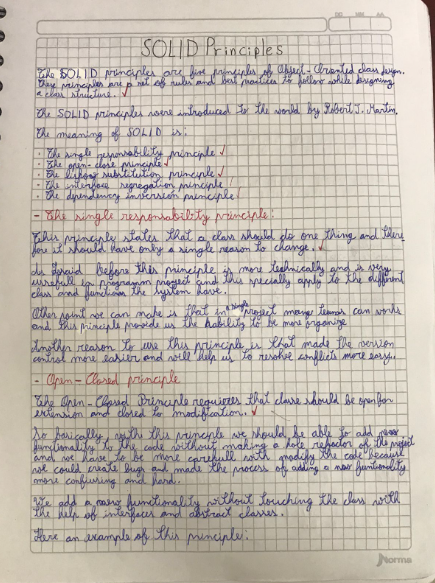 SOLID Principles
The SOLID principles are five principles of Object-Oriented class design.
These principles are a set of rules and best practices to follow while designing
a class structure.
The SOLID principles were introduced to the world by Robert J. Martin.
The meaning of SOLID is:
· The single responsability principle
· The open-close principle
· The liskov substitution principle
· The interface segregation principle
· The dependency inversion principle
- The single responsability principle:
This principle states that a class should do one thing and there
for it should have only a single reason to change.
As I said before this principle is more technically and is very
usefull in programm project and this specially apply to the different
class and functions the system have.
Other point we can make is that in a single project many teams can works
and this principle provide us the hability to be more organize
Another reason to use this principle is that made the version
control more easier and will help us to resolve conflicts more easy.
- Open-Closed principle
The Open-Closed Principle requires that clase should be open for
extension and closed to modification.
So basically with this principle we should be able to add new
functionality to the code without making a hole refactor of the project
and we have to be more carefull with modify the code because
we could create bug and made the process of adding a new funtionality
more confusing and hard.
We add a new functionality without touching the class with
the help of interfaces and abstract classes.
Here an example of this principle.
Norma